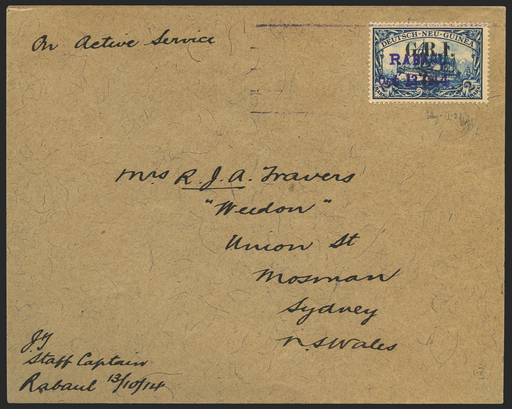 On Active Service
DEUTSCH-NEU-GUINEA
G.R.I.
RABAUL
Mrs R. J. A. Travers
"Weedon"
Union St
Mosman
Sydney
N.S Wales
Staff Captain
Rabaul 13/10/14